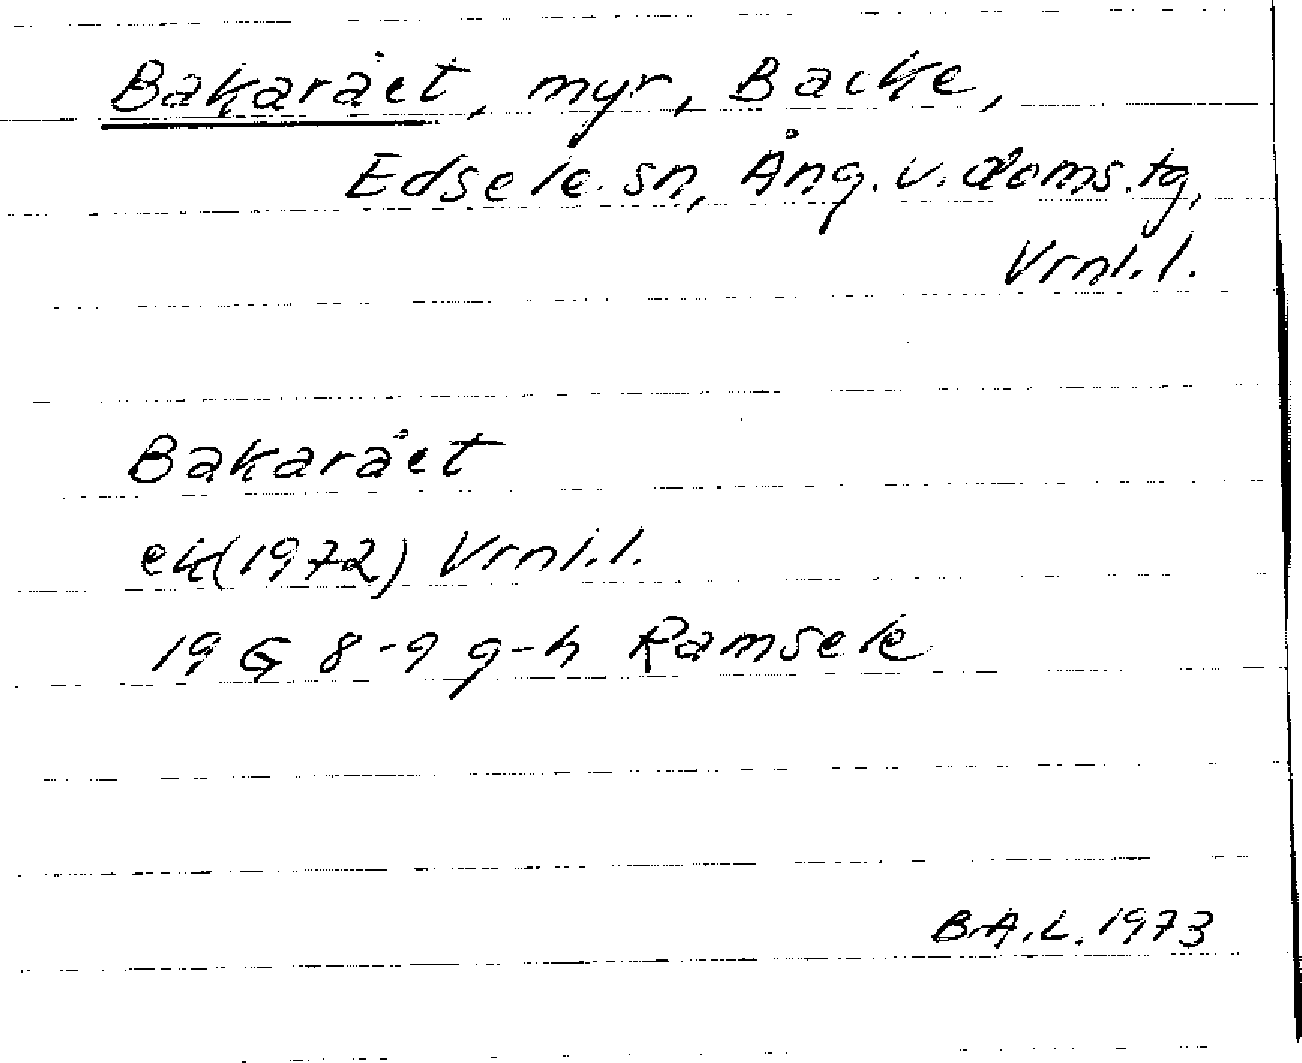 Bakarået, myr, Backe,
Edsele sn, Ång. v. doms. tg,
Vrnl. l.
Bakarået
ek (1972) Vrnl. l.
19 G 8-9 g-h Ramsele
B.A.L. 1973